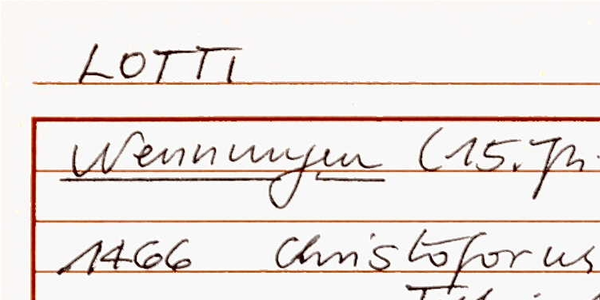 LOTTI
Wenningen (15. Jh.
1466 Christoforus